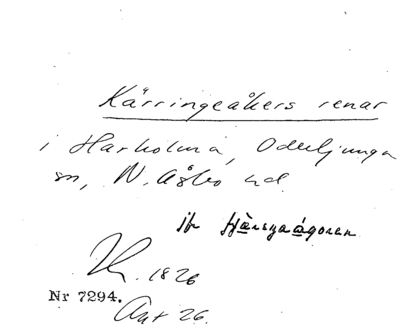 Käringeåkers renar
i Harholma, Oderljunga
sn, N. Åsbo hd.
jfr
Kr. 1826
Nr 7294.
Akt 26.